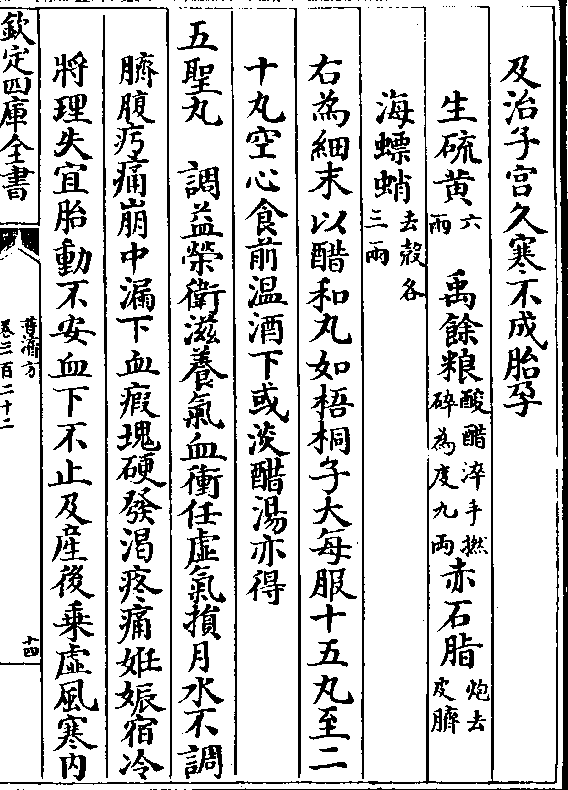 及治子宫久寒不成胎孕
生硫黄六兩 禹餘粮酸醋淬手撚碎為度九兩赤石脂炮去皮臍
海螵蛸去殻各三兩
右為細末以醋和丸如梧桐子大每服十五丸至二
十丸空心食前温酒下或淡醋湯亦得
五聖丸 調益榮衛滋養氣血衝任虚氣損月水不調
臍腹㽲痛崩中漏下血瘕塊硬發渇疼痛姙娠宿冷
將理失宜胎動不安血下不止及産後乗虚風寒内
欽定四庫全書
普濟方
卷三百二十二
十四